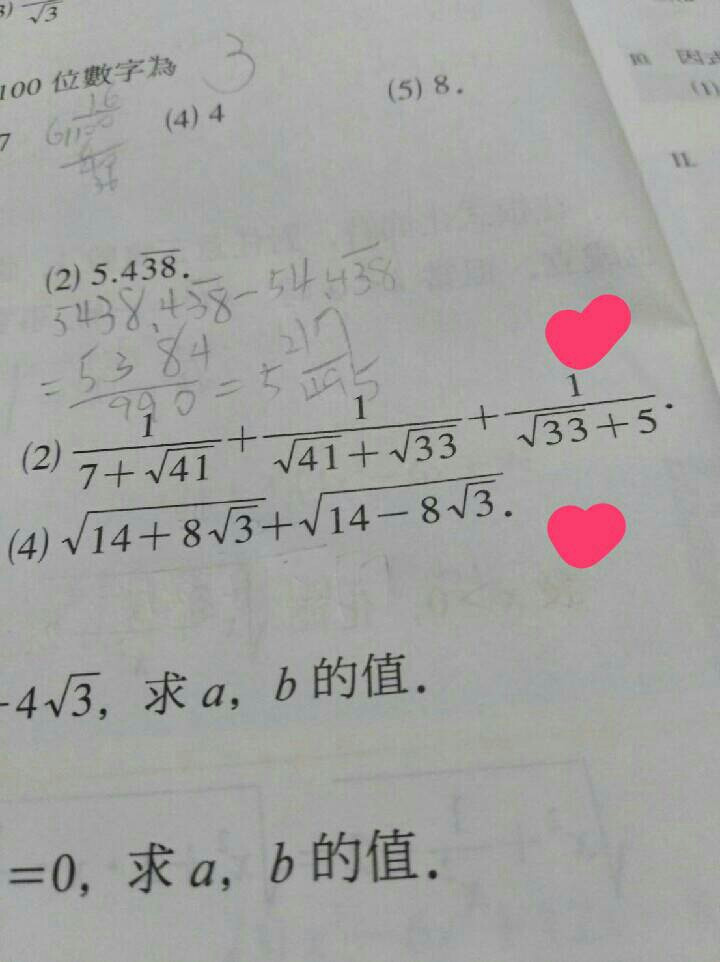 3) √3
100 位數字為 3
7 (4) 4 (5) 8.
10 因式
(1)
11.
(2) 5.4\overline{38}.
5438.\overline{438} - 54.\overline{438}
= \frac{5384}{990} = 5\frac{217}{495}
(2) \frac{1}{7+\sqrt{41}} + \frac{1}{\sqrt{41}+\sqrt{33}} + \frac{1}{\sqrt{33}+5}.
(4) \sqrt{14+8\sqrt{3}}+\sqrt{14-8\sqrt{3}}.
-4√3, 求 a, b 的值.
=0, 求 a, b 的值.